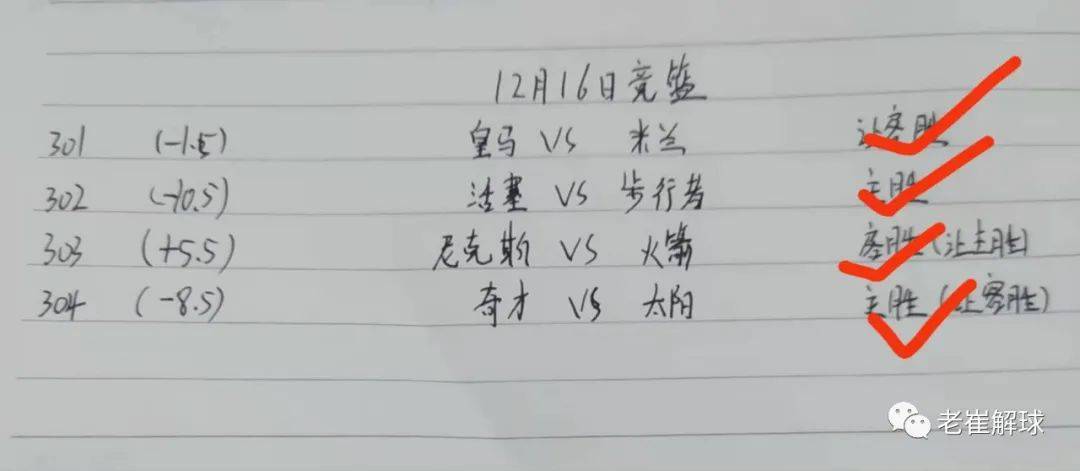 12月16日竞篮
301 (-1.5) 皇马 VS 米兰 让客胜
302 (-10.5) 活塞 VS 步行者 主胜
303 (+5.5) 尼克斯 VS 火箭 客胜(让主胜)
304 (-8.5) 奇才 VS 太阳 主胜(让客胜)
老崔解球